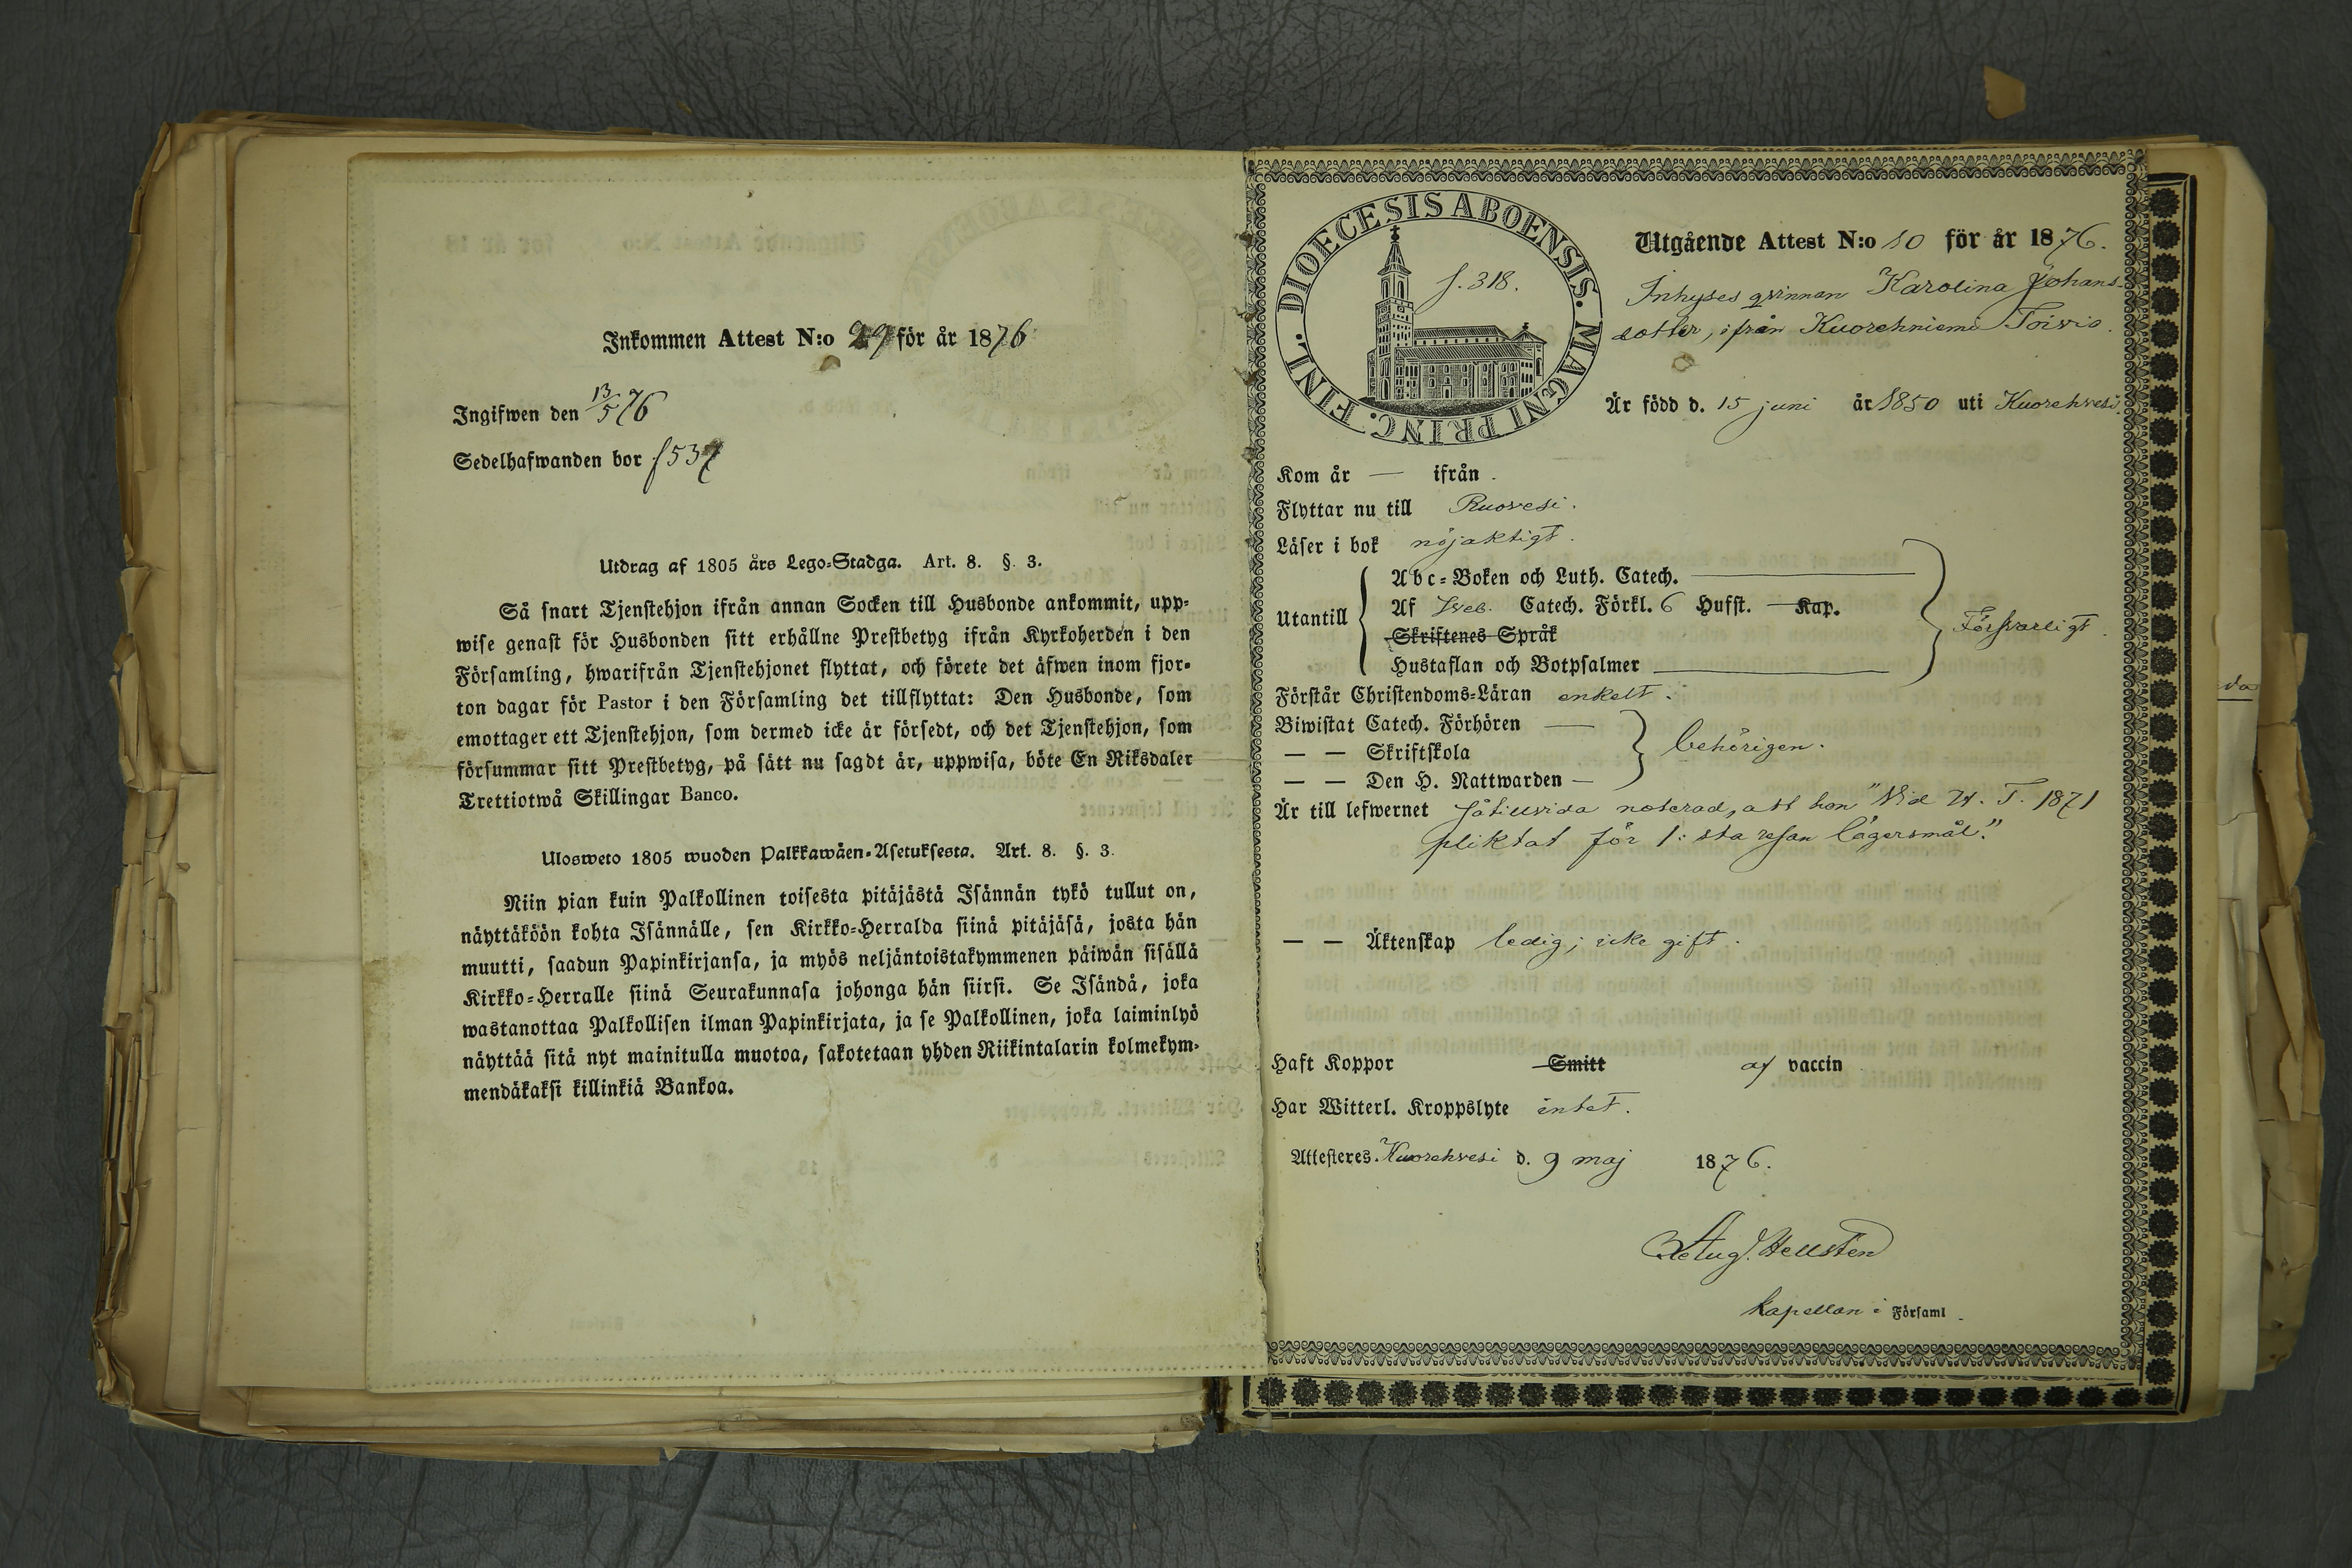 Inkommen Attest N:o 29 för år 1876
Ingifwen den 13/5 76
Sedelhafwanden bor f 537
Utdrag af 1805 års Lego-Stadga. Art. 8. §. 3.
Så snart Tjenstehjon ifrån annan Socken till Husbonde ankommit, upp-
wise genast för Husbonden sitt erhållne Prestbetyg ifrån Kyrkoherden i den
Församling, hwarifrån Tjenstehjonet flyttat, och förete det äfwen inom fjor-
ton dagar för Pastor i den Församling det tillflyttat: Den Husbonde, som
emottager ett Tjenstehjon, som dermed icke är försedt, och det Tjenstehjon, som
försummar sitt Prestbetyg, på sätt nu sagdt är, uppwisa, böte En Riksdaler
Trettiotwå Skillingar Banco.
Ulosweto 1805 wuoden Palkkawäen-Asetuksesta. Art. 8. §. 3.
Niin pian kuin Palkollinen toisesta pitäjästä Isännän tykö tullut on,
näyttäköön kohta Isännälle, sen Kirkko-Herralda siinä pitäjäsä, josta hän
muutti, saadun Papinkirjansa, ja myös neljäntoistakymmenen päiwän sisällä
Kirkko-Herralle siinä Seurakunnasa johonga hän siirsi. Se Isändä, joka
wastanottaa Palkollisen ilman Papinkirjata, ja se Palkollinen, joka laiminlyö
näyttää sitä nyt mainitulla muotoa, sakotetaan yhden Riikintalarin kolmekym-
mendäkaksi killinkiä Bankoa.
DIOECESIS ABOENSIS. MAGNI PRINC. FINL.
f. 318.
Utgående Attest N:o 10 för år 1876.
Inhyses qvinnan Karolina Johans-
dotter, ifrån Kuorehniemi Toivio.
Är född d. 15 juni år 1850 uti Kuorehvesi
Kom år — ifrån .
Flyttar nu till Ruovesi.
Läser i bok nöjaktigt.
Utantill
Abc-Boken och Luth. Catech. —
Af Sveb. Catech. Förkl. 6 Hufst. — Kap.
Skriftenes Språk
Hustaflan och Botpsalmer —
Försvarligt
Förstår Christendoms-Läran enkelt.
Biwistat Catech. Förhören —
— — Skriftskola
— — Den H. Nattwarden —
behörigen.
Är till lefwernet såtillvida noterad, att hon "Vid W. T. 1871
pliktat för 1:sta resan lägersmål."
— — Äktenskap ledig; icke gift.
Haft Koppor Smitt af vaccin
Har Witterl. Kroppslyte intet.
Attesteres. Kuorehvesi d. 9 maj 1876.
Aug. Hellsten
Kapellan i Församl.